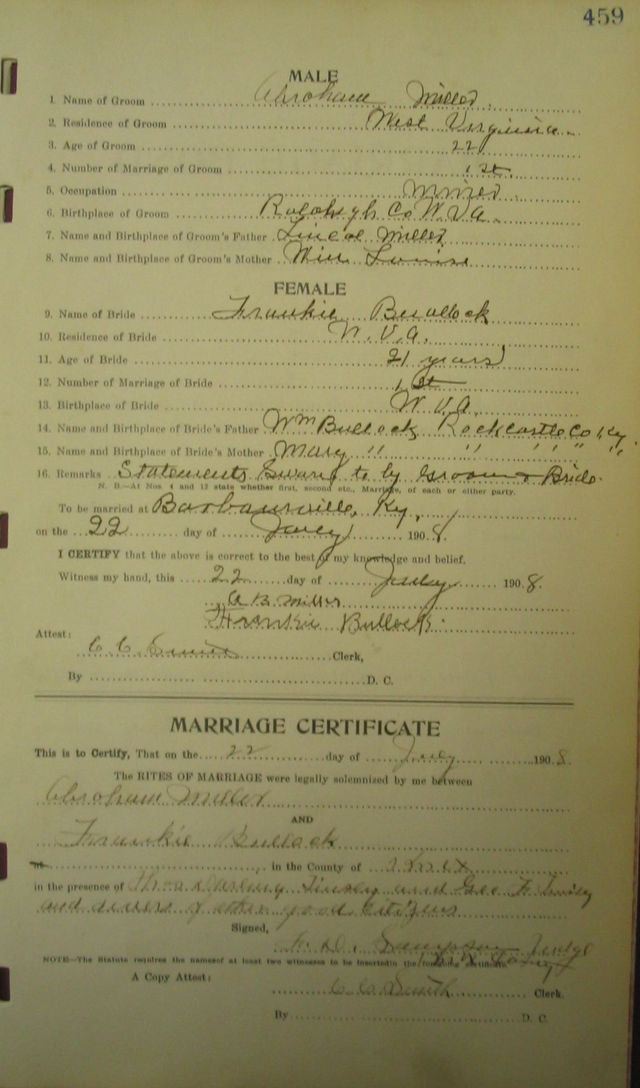 459
MALE
1. Name of Groom Abraham Miller
2. Residence of Groom West Virginia
3. Age of Groom 22
4. Number of Marriage of Groom 1st
5. Occupation Miner
6. Birthplace of Groom Raleigh Co W.VA.
7. Name and Birthplace of Groom's Father Miller
8. Name and Birthplace of Groom's Mother
FEMALE
9. Name of Bride Frankie Bullock
10. Residence of Bride W.V.A.
11. Age of Bride 21 years
12. Number of Marriage of Bride 1st
13. Birthplace of Bride W.V.A.
14. Name and Birthplace of Bride's Father Wm Bullock Rockcastle Co Ky.
15. Name and Birthplace of Bride's Mother Mary " " " " "
16. Remarks Statements Sworn to by Groom & Bride.
N. B.—At Nos. 4 and 12 state whether first, second etc., Marriage, of each or either party.
To be married at Barbourville, Ky.
on the 22 day of July 1908.
I CERTIFY that the above is correct to the best of my knowledge and belief.
Witness my hand, this 22 day of July 1908.
A B Miller
Frankie Bullock.
Attest:
C. C. Smith Clerk,
By D. C.
MARRIAGE CERTIFICATE
This is to Certify, That on the 22 day of July 1908.
The RITES OF MARRIAGE were legally solemnized by me between
Abraham Miller
AND
Frankie Bullock
at in the County of Knox
in the presence of Sterling Tinsley and Geo F. Tinsley
and of other good Citizens
Signed,
Sampson Judge
NOTE—The Statute requires the names of at least two witnesses to be inserted in the foregoing certificate.
A Copy Attest:
C C Smith Clerk.
By D. C.